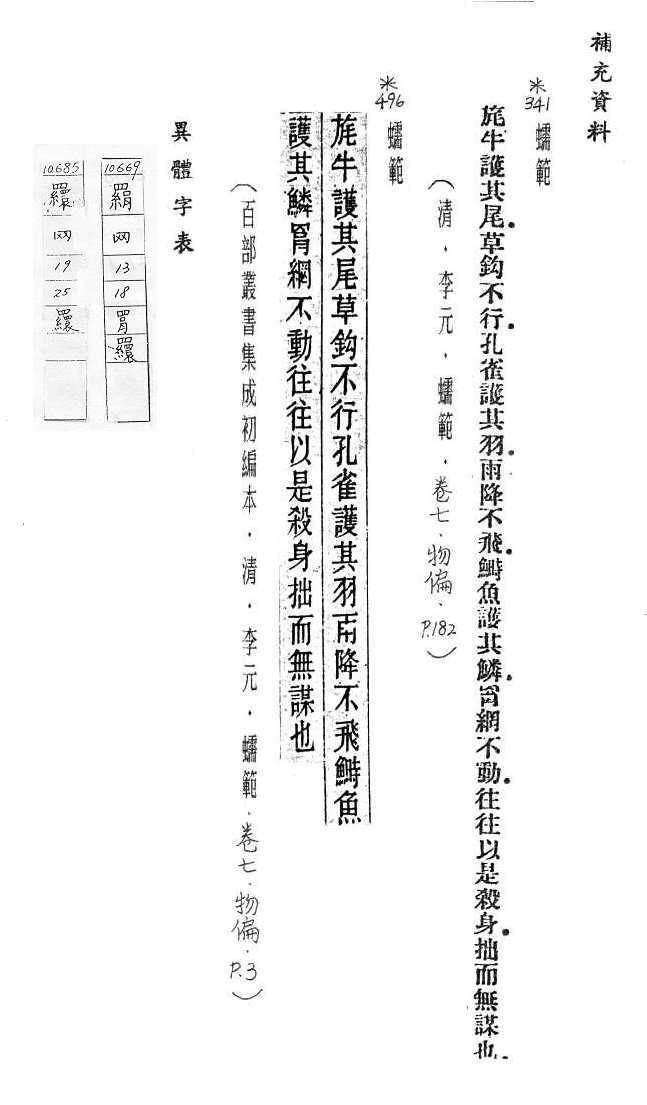 補充資料
*341 蠕範
旄牛護其尾草鈎不行孔雀護其羽雨降不飛鰣魚護其鱗罥網不動往往以是殺身拙而無謀也
(清．李元．蠕範．卷七．物偏．P.182)
*496 蠕範
旄牛護其尾草鈎不行孔雀護其羽雨降不飛鰣魚
護其鱗罥網不動往往以是殺身拙而無謀也
(百部叢書集成初編本．清．李元．蠕範．卷七．物偏．P.3)
異體字表
10669 羂 网 13 18 罥 羂
10685 羂 网 19 25